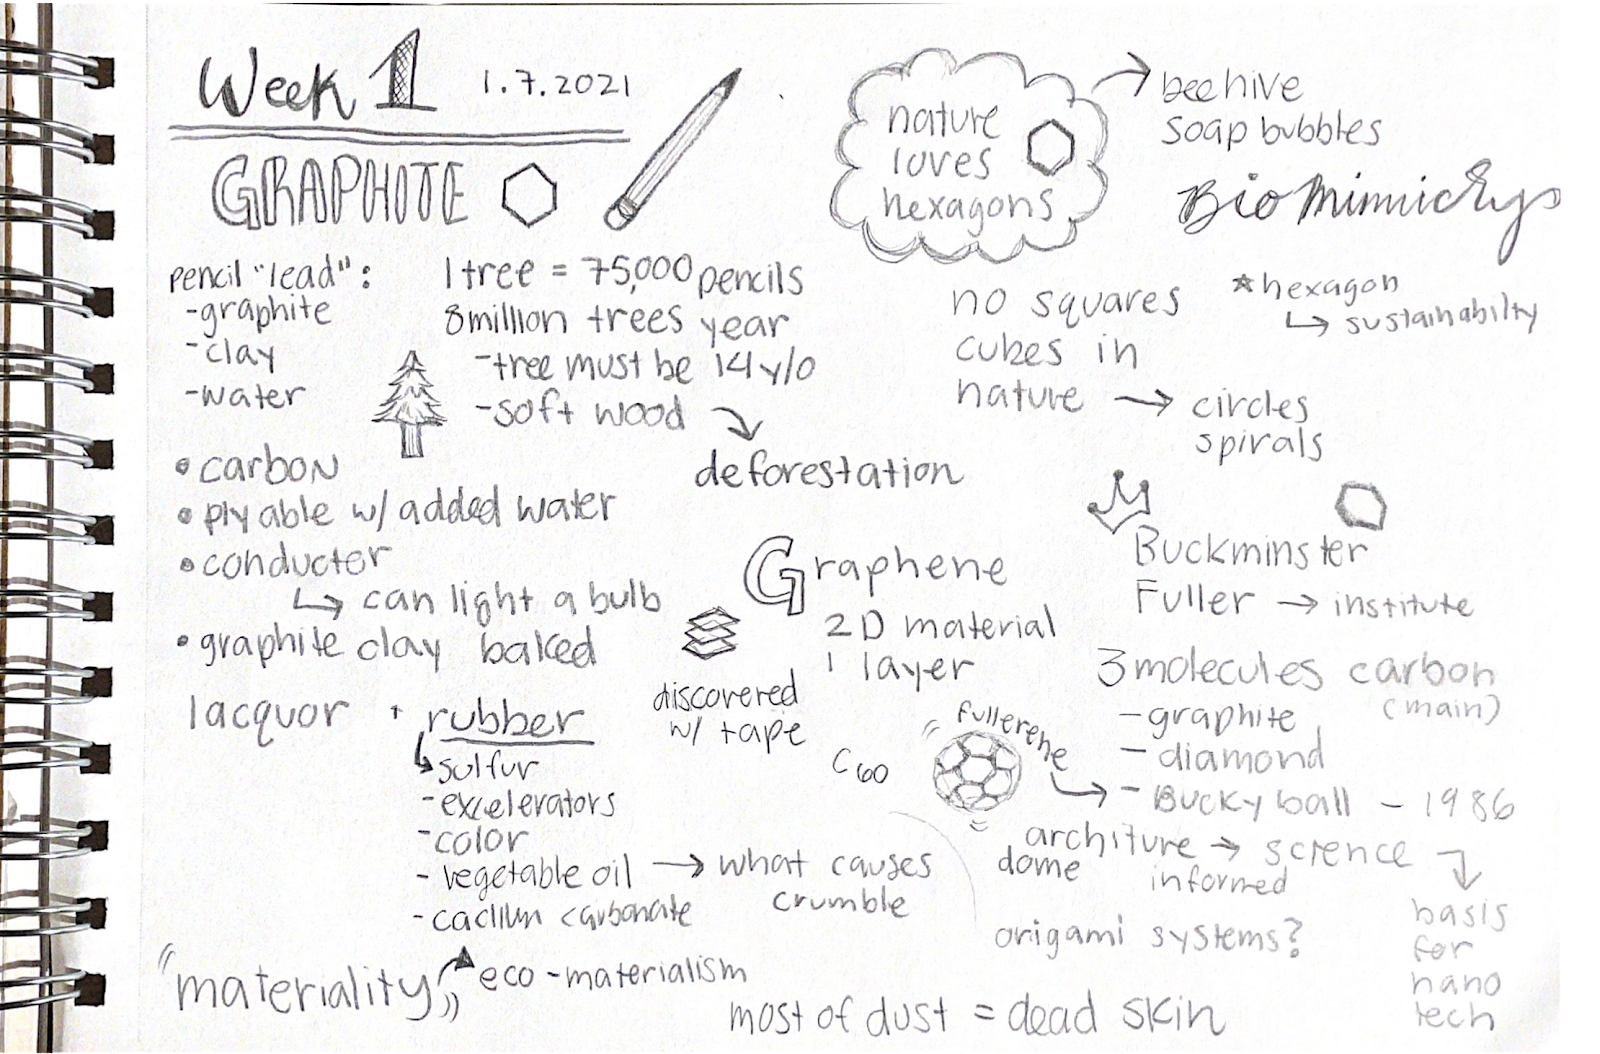 Week 1 1.7.2021
GRAPHITE
pencil "lead":
-graphite
-clay
-water
1 tree = 75,000 pencils
8 million trees year
-tree must be 14 y/o
-soft wood
deforestation
• carbon
• plyable w/ added water
• conductor
↳ can light a bulb
• graphite clay baked
lacquor + rubber
↳ sulfur
-excelerators
-color
- vegetable oil → what causes
crumble
- caclium carbonate
"materiality" eco-materialism
nature
loves
hexagons
→ beehive
soap bubbles
BioMimicry
* hexagon
↳ sustainabilty
no squares
cubes in
nature → circles
spirals
Graphene
2D material
1 layer
discovered
w/ tape
Buckminster
Fuller → institute
3 molecules carbon
(main)
-graphite
- diamond
- Bucky ball - 1986
"fullerene"
C60
architure → science
dome informed
basis
for
nano
tech
origami systems?
most of dust = dead skin